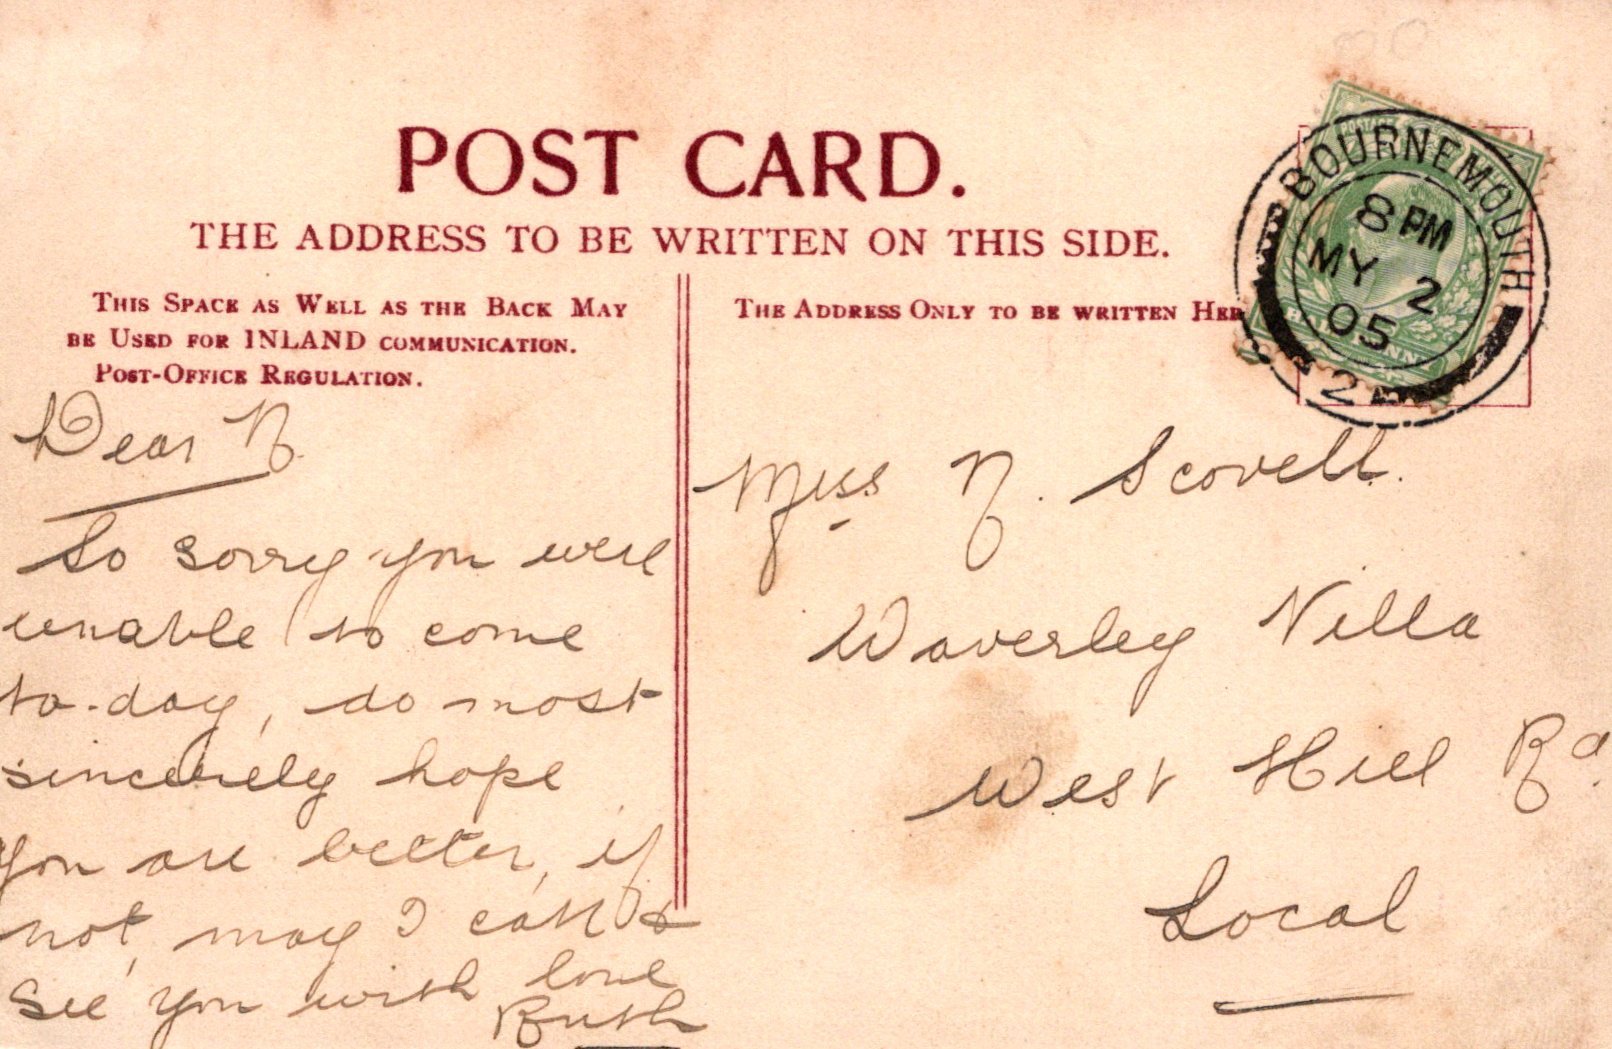 POST CARD.
THE ADDRESS TO BE WRITTEN ON THIS SIDE.
THIS SPACE AS WELL AS THE BACK MAY
BE USED FOR INLAND COMMUNICATION.
POST-OFFICE REGULATION.
Dear N.
So sorry you were
unable to come
to-day, do most
sincerely hope
you are better, if
not, may I call &
see you with love
Ruth
THE ADDRESS ONLY TO BE WRITTEN HER
BOURNEMOUTH
8 PM
MY 2
05
2
POSTAGE
HALFPENNY
Miss N. Scovell.
Waverley Villa
West Hill Rd.
Local